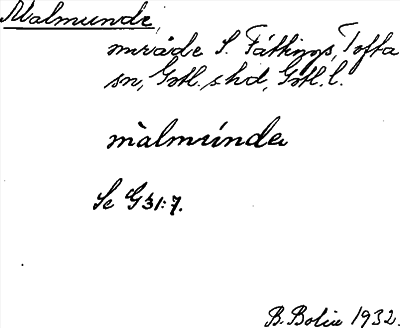 Malmunde,
mråde S. Fättings, Tofta
sn, Gotl. s. hd, Gotl. l.
màlmúnde
Se G 31:7.
B. Bolin 1932.